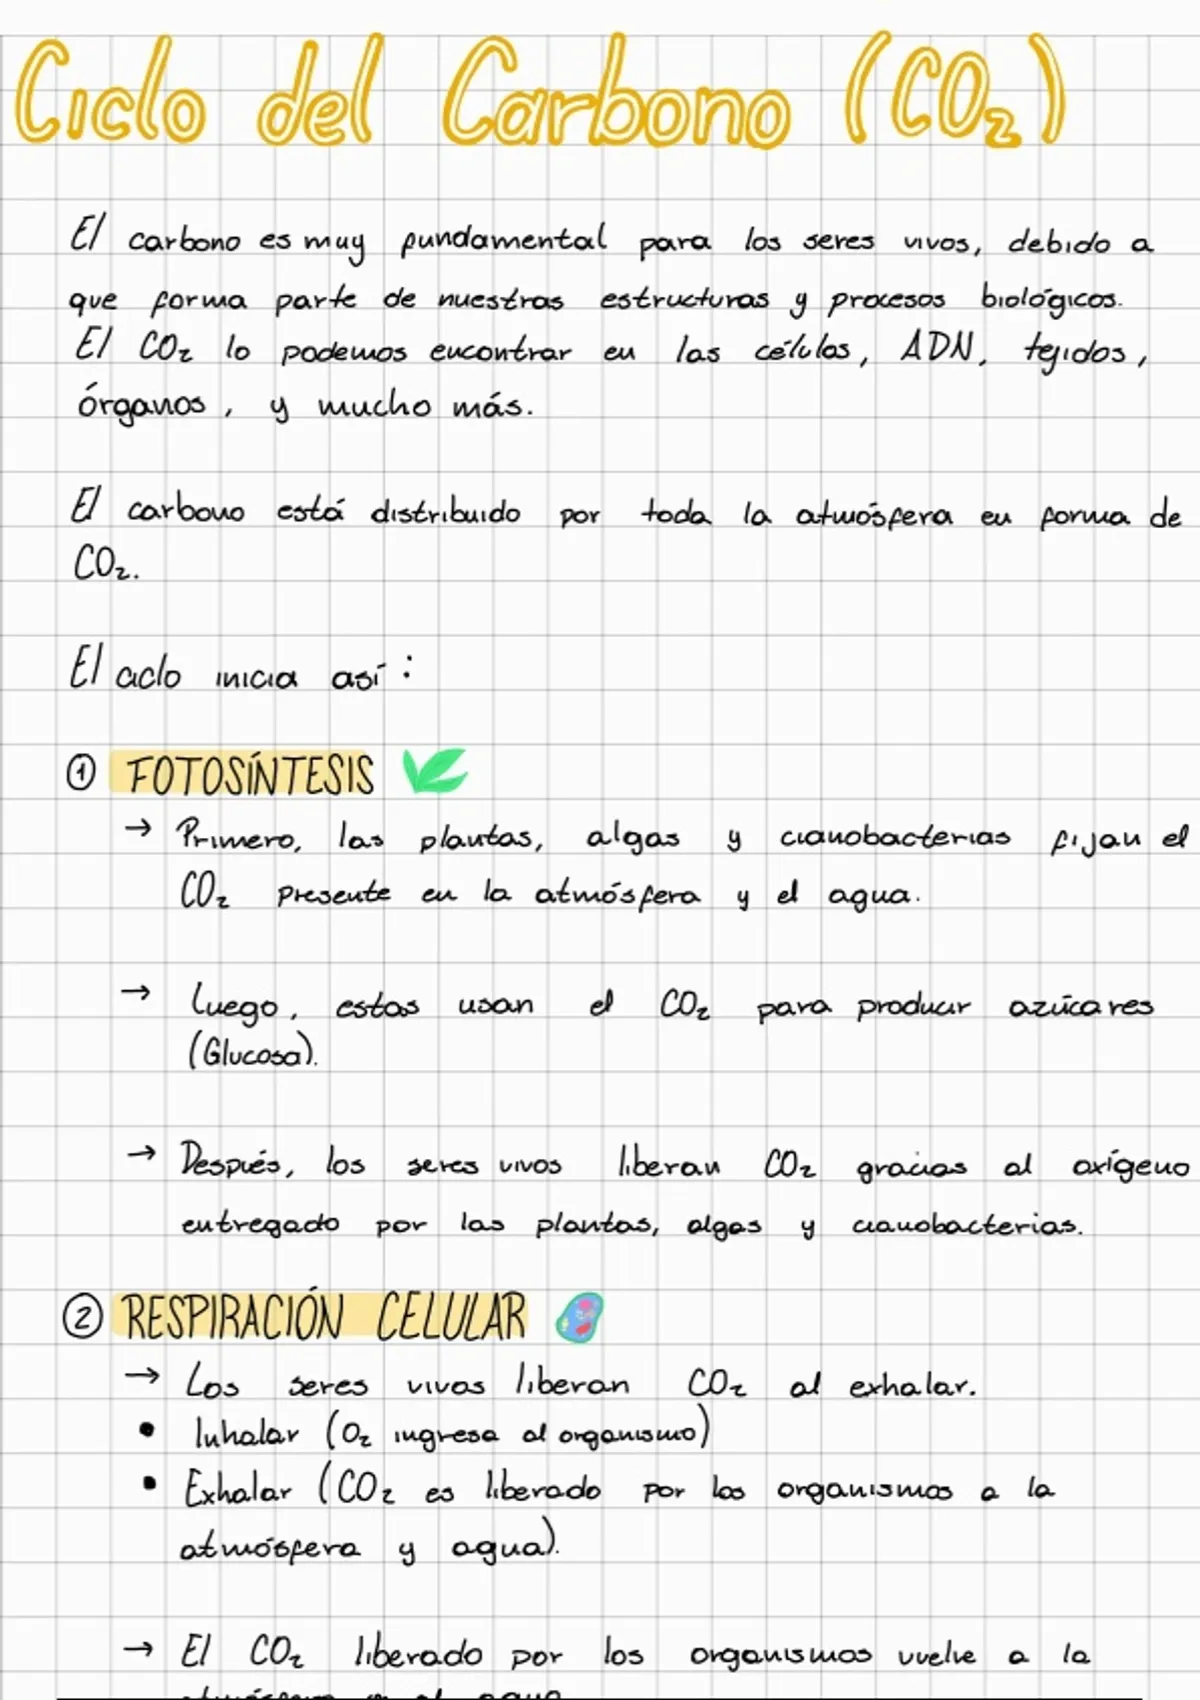 Ciclo del Carbono (CO₂)
El carbono es muy fundamental para los seres vivos, debido a
que forma parte de nuestras estructuras y procesos biológicos.
El CO₂ lo podemos encontrar en las células, ADN, tejidos,
órganos, y mucho más.
El carbono está distribuido por toda la atmósfera en forma de
CO₂.
El ciclo inicia así:
① FOTOSÍNTESIS
→ Primero, las plantas, algas y cianobacterias fijan el
CO₂ presente en la atmósfera y el agua.
→ Luego, estas usan el CO₂ para producir azúcares
(Glucosa).
→ Después, los seres vivos liberan CO₂ gracias al oxígeno
entregado por las plantas, algas y cianobacterias.
② RESPIRACIÓN CELULAR
→ Los seres vivos liberan CO₂ al exhalar.
• Inhalar (O₂ ingresa al organismo)
• Exhalar (CO₂ es liberado por los organismos a la
atmósfera y agua).
→ El CO₂ liberado por los organismos vuelve a la
atmósfera y el agua